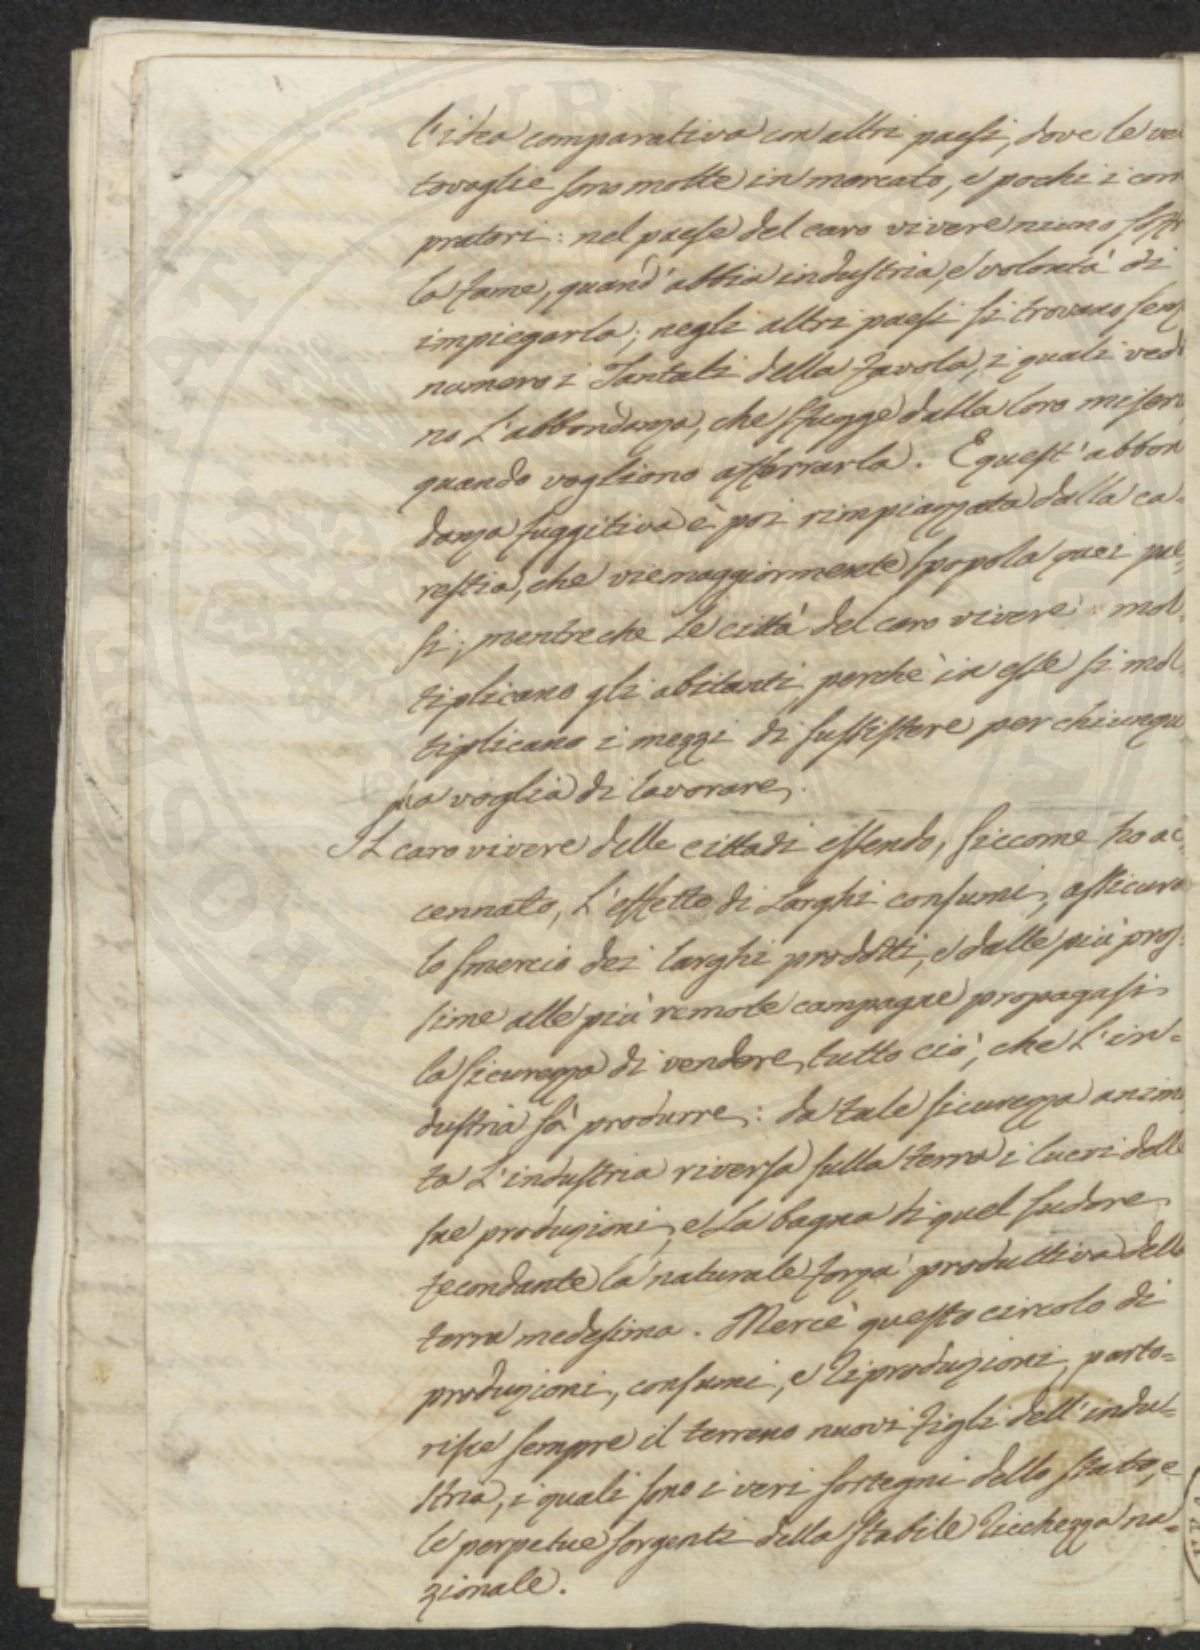 l'idea comparativa con altri paesi, dove le vet
tovaglie sono molte in mercato, e pochi i com
pratori: nel paese del caro vivere niuno soffr
la fame, quand'abbia industria, e volontà di
impiegarla; negli altri paesi si trovano senz
numero i Tantali della favola, i quali vedo
no l'abbondanza, che sfugge dalla loro miseri
quando vogliono afferrarla. E quest'abbon
danza fuggitiva è poi rimpiazzata dalla ca-
restia, che viemaggiormente spopola quei pae-
si; mentreche le città del caro vivere mol-
tiplicano gli abitanti, perchè in esse si mol-
tiplicano i mezzi di sussistere per chiunque
ha voglia di lavorare.
Il caro vivere delle cittadi essendo, siccome ho ac
cennato, l'effetto di larghi consumi, assicura
lo smercio dei larghi prodotti, e dalle più pros-
sime alle più remote campagne propagasi
la sicurezza di vendere tutto ciò, che l'in-
dustria fà produrre: da tale sicurezza anima
ta l'industria riversa sulla terra i lucri delle
sue produzioni, e la bagna di quel sudore
fecondante la naturale forza produttiva della
terra medesima. Mercè questo circolo di
produzioni, consumi, e riproduzioni, parto=
risce sempre il terreno nuovi figli dell'indu=
stria, i quali sono i veri sostegni dello stato, e
le perpetue sorgenti della stabile ricchezza na=
zionale.